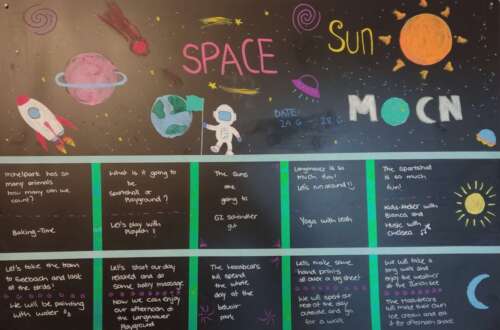 SPACE
Sun
MOON
DATE:
24.6 - 28.6
many animals
how many can we
count?
Baking-Time
What is it going to
be
Sportshall or
Playground?
Let's play with
The suns
are
going to
GZ Schindler
gut
is so
much fun!
Let's run around!!
Yoga with Leah
The sportshall
is so much
fun!
Kids-Atelier with
Bianca and
Music with
Chelsea
Let's take the train
to Seebach and look
at the birds!
We will be painting
with water
Let's start our day
relaxed and do
some belly massage
Now we can enjoy
our afternoon at
the Langmauer
Playground
The Moonbears
will spend
the whole
day at the
park
Let's make some
hand prints
all over a big sheet!
We will spend the
rest of the day
outside and go
for a walk
We will take a
long walk and
enjoy the weather
at the
The Moonbears
will make their own
ice cream and eat
it at afternoon snack